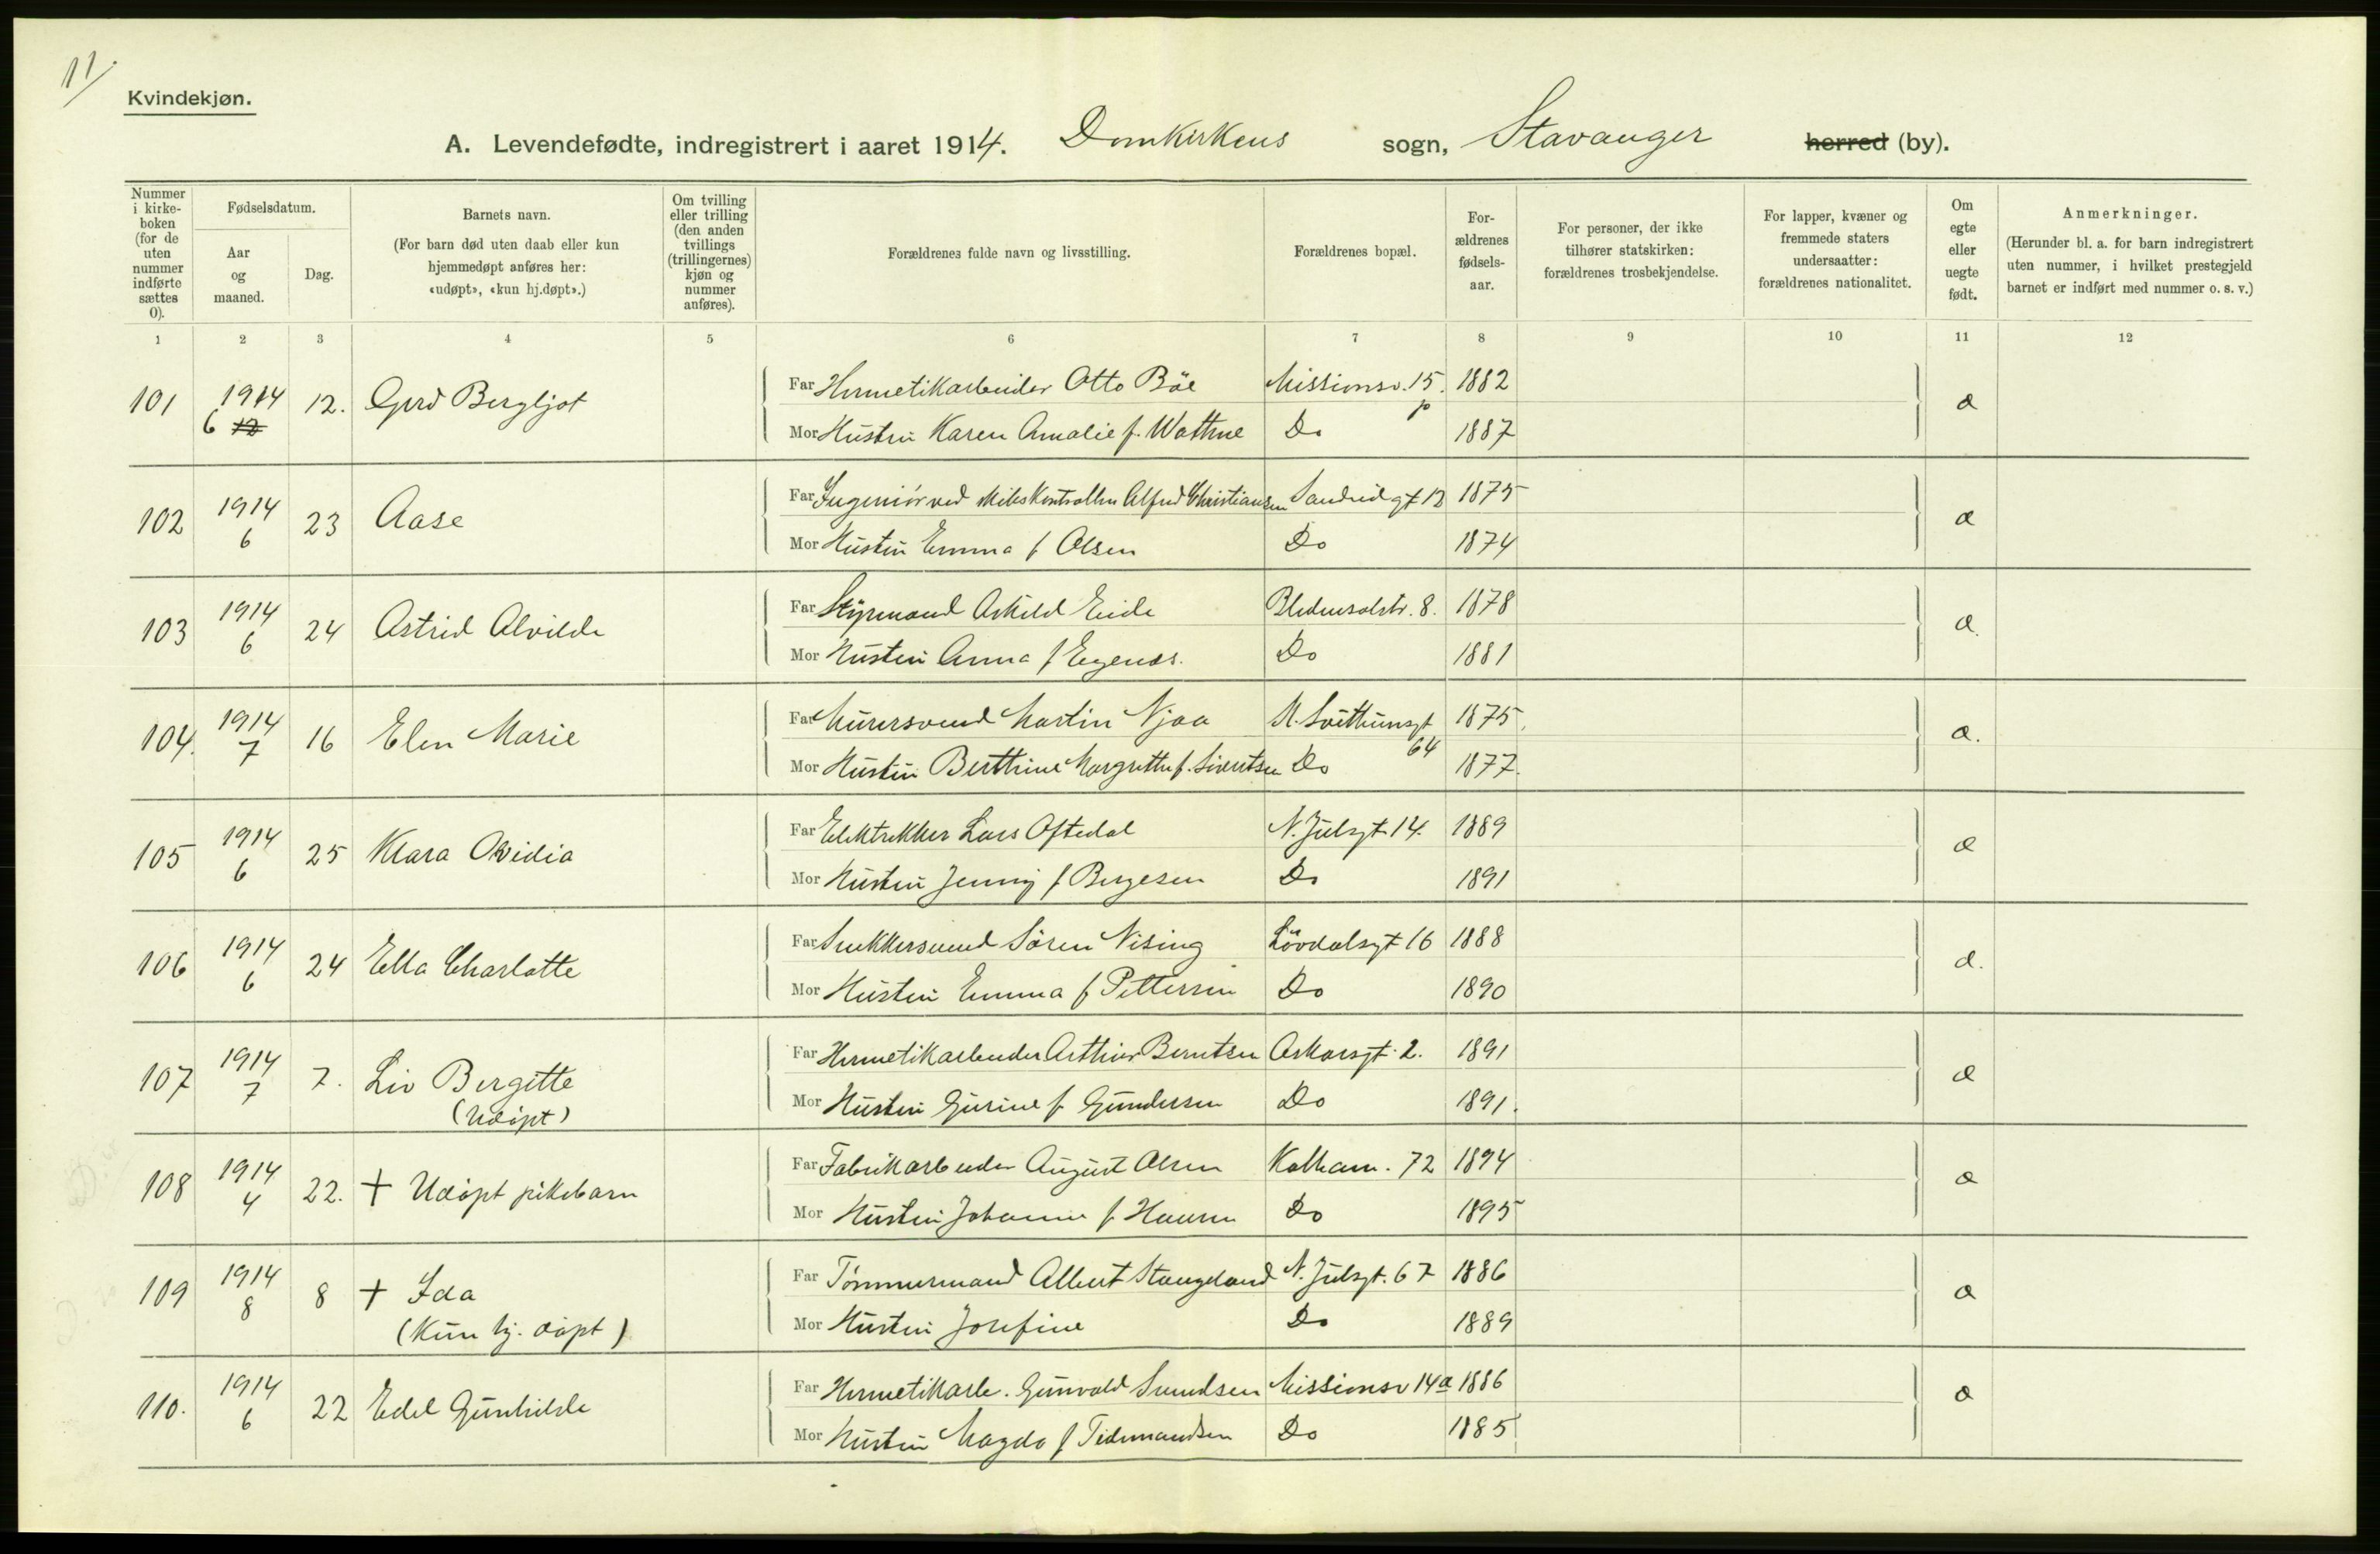 11.
Kvindekjøn.
A. Levendefødte, indregistrert i aaret 1914. Domkirkens sogn, Stavanger herred (by).
Nummer i kirkeboken (for de uten nummer indførte sættes 0).
Fødselsdatum.
Aar og maaned.
Dag.
Barnets navn.
(For barn død uten daab eller kun hjemmedøpt anføres her: «udøpt», «kun hj.døpt».)
Om tvilling eller trilling (den anden tvillings (trillingernes) kjøn og nummer anføres).
Forældrenes fulde navn og livsstilling.
Forældrenes bopæl.
Forældrenes fødselsaar.
For personer, der ikke tilhører statskirken: forældrenes trosbekjendelse.
For lapper, kvæner og fremmede staters undersaatter: forældrenes nationalitet.
Om egte eller uegte født.
Anmerkninger.
(Herunder bl. a. for barn indregistrert uten nummer, i hvilket prestegjeld barnet er indført med nummer o. s. v.)
1 2 3 4 5 6 7 8 9 10 11 12
101 1914 6 12 12. Gerd Bergljot
Far Hermetikarbeider Otto Böe Missionsv. 15. 1882
Mor Hustru Karen Amalie f. Wathne Do 1887
102 1914 6 23 Aase
Far Ingeniör ved Alfred Christiansen Sandvigt 12 1875
Mor Hustru Emma f Olsen Do 1874
103 1914 6 24 Astrid Alvilde
Far Styrmand Askild Eide Bledensolstr. 8. 1878
Mor Hustru Anna f Egenes. Do 1881
104. 1914 7 16 Elen Marie
Far Murersvend Martin Njaa St. Svithunsgt 64 1875
Mor Hustru Berthine Margrethe f. Sivertsen Do 1877.
105 1914 6 25 Klara Ovidia
Far Elektrikker Lars Oftedal N. Julsgt 14. 1889
Mor Hustru Jenny f Bergesen Do 1891
106 1914 6 24 Ella Charlotte
Far Snekkersvend Sören Nising Lövdalsgt 16 1888
Mor Hustru Emma f Pettersen Do 1890
107 1914 7 7. Liv Bergitte
(Udöpt)
Far Hermetikarbeider Arthur Berntsen Askorsgt. 2. 1891
Mor Hustru Gurine f Gundersen Do 1891.
108 1914 4 22. † Udöpt pikebarn
Far Fabrikarbeider August Olsen Kalham. 72 1894
Mor Hustru Johanne f Hansen Do 1895
109 1914 8 8 † Ida
(Kun hj. döpt)
Far Tömmermand Albert Stangeland N. Julsgt. 67 1886
Mor Hustru Josefine Do 1889
110. 1914 6 22 Edel Gunhilde
Far Hermetikarb. Gunvald Svendsen Missionsv 14a 1886
Mor Hustru Magda f Tidemandsen Do 1885